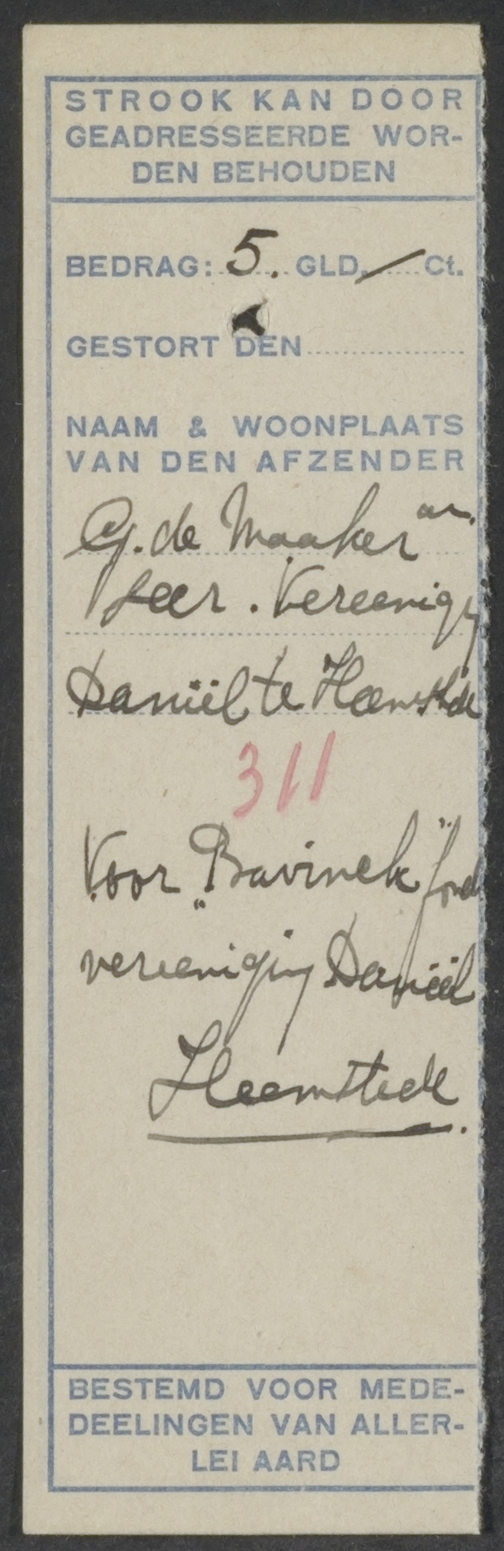 STROOK KAN DOOR
GEADRESSEERDE WOR-
DEN BEHOUDEN
BEDRAG: 5. GLD. / Ct.
GESTORT DEN
NAAM & WOONPLAATS
VAN DEN AFZENDER
G. de Maaker
Vereenigg
Daniël te Heemstede
311
Voor „Bavinck" fond
vereeniging Daniël
Heemstede.
BESTEMD VOOR MEDE-
DEELINGEN VAN ALLER-
LEI AARD